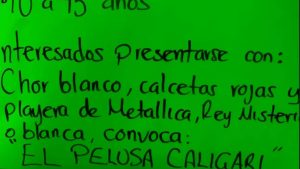 10 a 15 años
nteresados presentarse con:
Chor blanco, calcetas rojas y
playera de Metallica, Rey Misteri
o blanca, convoca:
EL PELUSA CALIGARI"